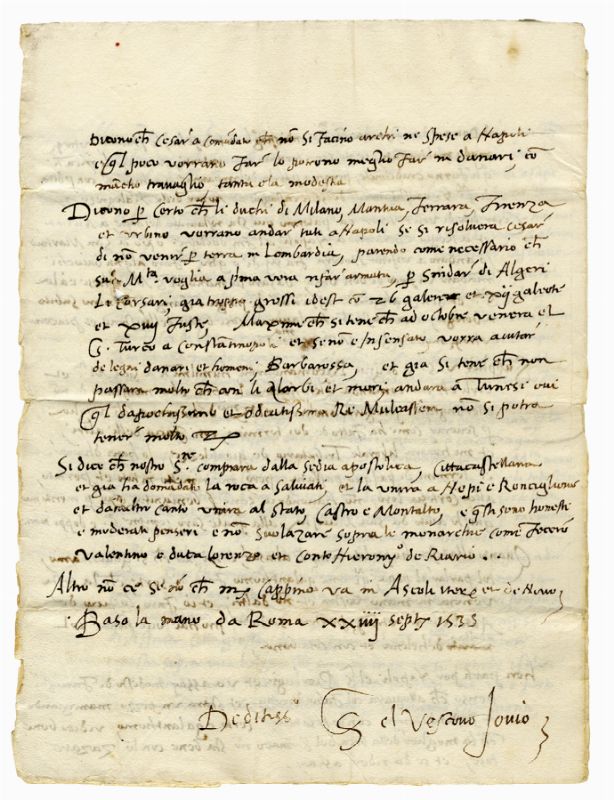 Dicono ch Cesar a comãdato ch nõ si facino archi ne spese a Napoli
e ql poco vorrano far lo potrono meglio far in danari, cõ
mãcho travaglio tanta e la modesta
Dicono p certo ch li duchi di Milano, Mantua, Ferrara, Firenza
et Urbino vorrano andar tuti a Napoli se si risoluera Cesar
di nõ venir p terra in Lombardia, parendo come necessario ch
sua Mta voglia a pma vera rifar armata, p Snidar di Algeri
Li Corsari, gia troppo grossi idest cõ 26 galere et xij galeote
et xiiij fuste, Maxime ch si tene ch ad octobre venera el
G. Turco a Constantinopoli et se nõ e insensato vorra aiutar
de legni danari et homeni, Barbarossa, et gia si tene ch non
passara molto ch con li Alorbi et mori andara a Tunise ovi
ql dapocissimo et Re Muleassem nõ si potra
tener molto
Si dice ch nostro Sre compara dalla sedia apostolica, Cittacastellana
et gia ha domãdata la roca a Salviati, et la unira a Nepi e Ronciglione
et dãnaltro canto unira al Stato, Castro e Montalto, e qsti seno honesti
e moderati penseri e nõ svolazare sopra le monarchie come fecero
Valentino e duca Lorenzo et Conte Hieronymo de Riario . .
Altro nõ ce se nõ ch mr Cappino va in Ascoli et de novo
Baso la mano da Roma xxiiij septr 1535
Deditiss
el Vescovo Jovio